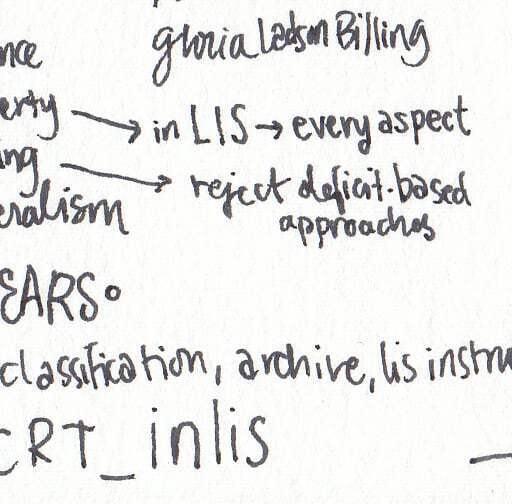 gloria Ladson Billing
nce
erty → in LIS → every aspect
ing → reject deficit-based
eralism approaches
EARS
classification, archive, lis instru
CRT_inlis